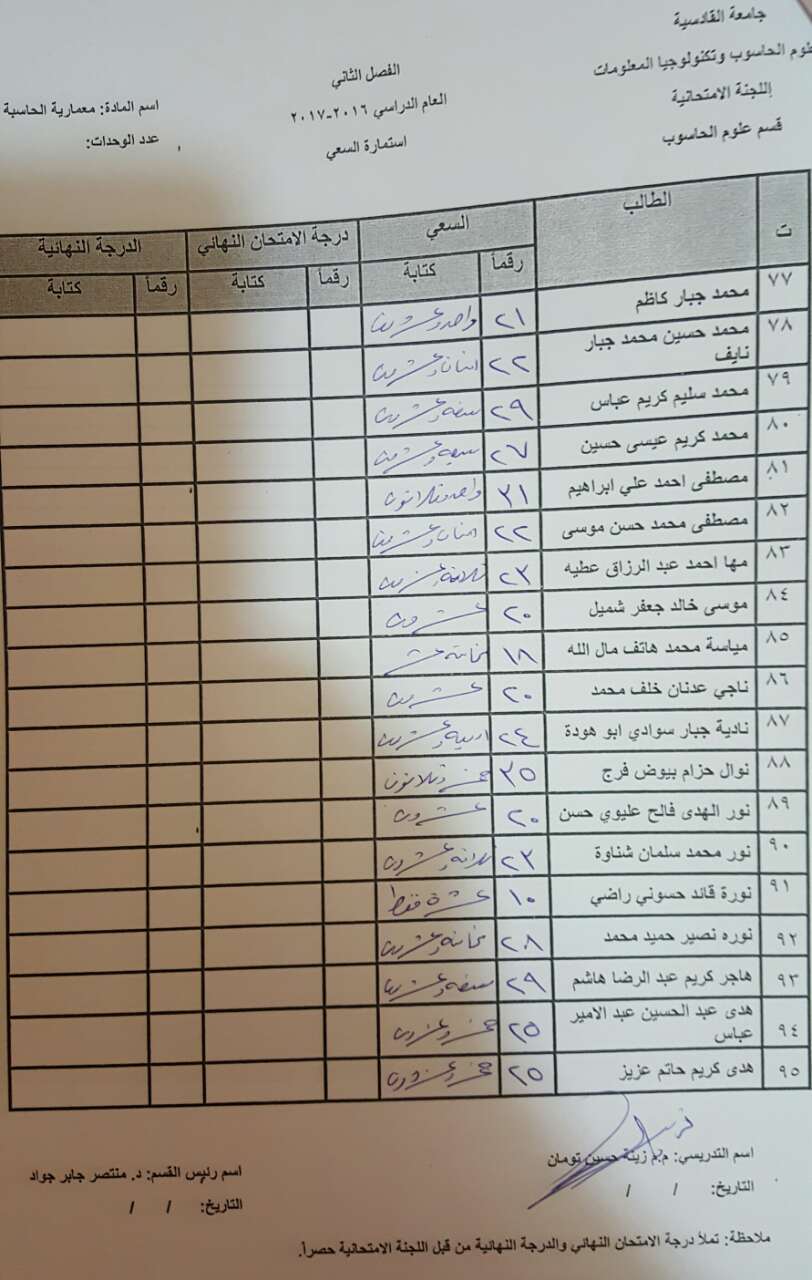 جامعة القادسية
علوم الحاسوب وتكنولوجيا المعلومات
اللجنة الامتحانية
قسم علوم الحاسوب
الفصل الثاني
العام الدراسي ٢٠١٦-٢٠١٧
استمارة السعي
اسم المادة: معمارية الحاسبة
عدد الوحدات:
ت الطالب السعي درجة الامتحان النهائي الدرجة النهائية
رقماً كتابة رقماً كتابة رقماً كتابة
٧٧ محمد جبار كاظم ٢١ واحد وعشرون
٧٨ محمد حسين محمد جبار نايف ٢٢ اثنان وعشرون
٧٩ محمد سليم كريم عباس ٢٩ تسعة وعشرون
٨٠ محمد كريم عيسى حسين ٢٧ سبعة وعشرون
٨١ مصطفى احمد علي ابراهيم ٣١ واحد وثلاثون
٨٢ مصطفى محمد حسن موسى ٢٢ اثنان وعشرون
٨٣ مها احمد عبد الرزاق عطيه ٢٣ ثلاثة وعشرون
٨٤ موسى خالد جعفر شميل ٢٠ عشرون
٨٥ مياسة محمد هاتف مال الله ١٨ ثمانية عشر
٨٦ ناجي عدنان خلف محمد ٢٠ عشرون
٨٧ نادية جبار سوادي ابو هودة ٢٤ اربعة وعشرون
٨٨ نوال حزام بيوض فرج ٣٥ خمسة وثلاثون
٨٩ نور الهدى فالح عليوي حسن ٢٠ عشرون
٩٠ نور محمد سلمان شناوة ٢٣ ثلاثة وعشرون
٩١ نورة قائد حسوني راضي ١٠ عشرة فقط
٩٢ نوره نصير حميد محمد ٢٨ ثمانية وعشرون
٩٣ هاجر كريم عبد الرضا هاشم ٢٩ تسعة وعشرون
٩٤ هدى عبد الحسين عبد الامير عباس ٢٥ خمسة وعشرون
٩٥ هدى كريم حاتم عزيز ٢٥ خمسة وعشرون
اسم التدريسي: م.م زينة حسين تومان
التاريخ: / /
اسم رئيس القسم: د. منتصر جابر جواد
التاريخ: / /
ملاحظة: تملأ درجة الامتحان النهائي والدرجة النهائية من قبل اللجنة الامتحانية حصراً.